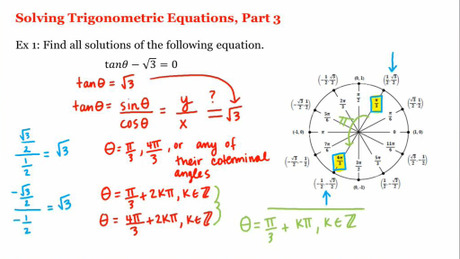 Solving Trigonometric Equations, Part 3
Ex 1: Find all solutions of the following equation.
tanθ − √3 = 0
tanθ = √3
tanθ = sinθ/cosθ = y/x ?= √3
θ = π/3, 4π/3, or any of
their coterminal
angles
θ = π/3 + 2kπ, k∈ℤ
θ = 4π/3 + 2kπ, k∈ℤ
θ = π/3 + kπ, k∈ℤ
(√3/2)/(1/2) = √3
(−√3/2)/(−1/2) = √3
(0, 1)
π/2
2π/3
π/3
5π/6
(-1, 0)
π
0
(1, 0)
7π/6
11π/6
4π/3
5π/3
3π/2
(0, -1)
π